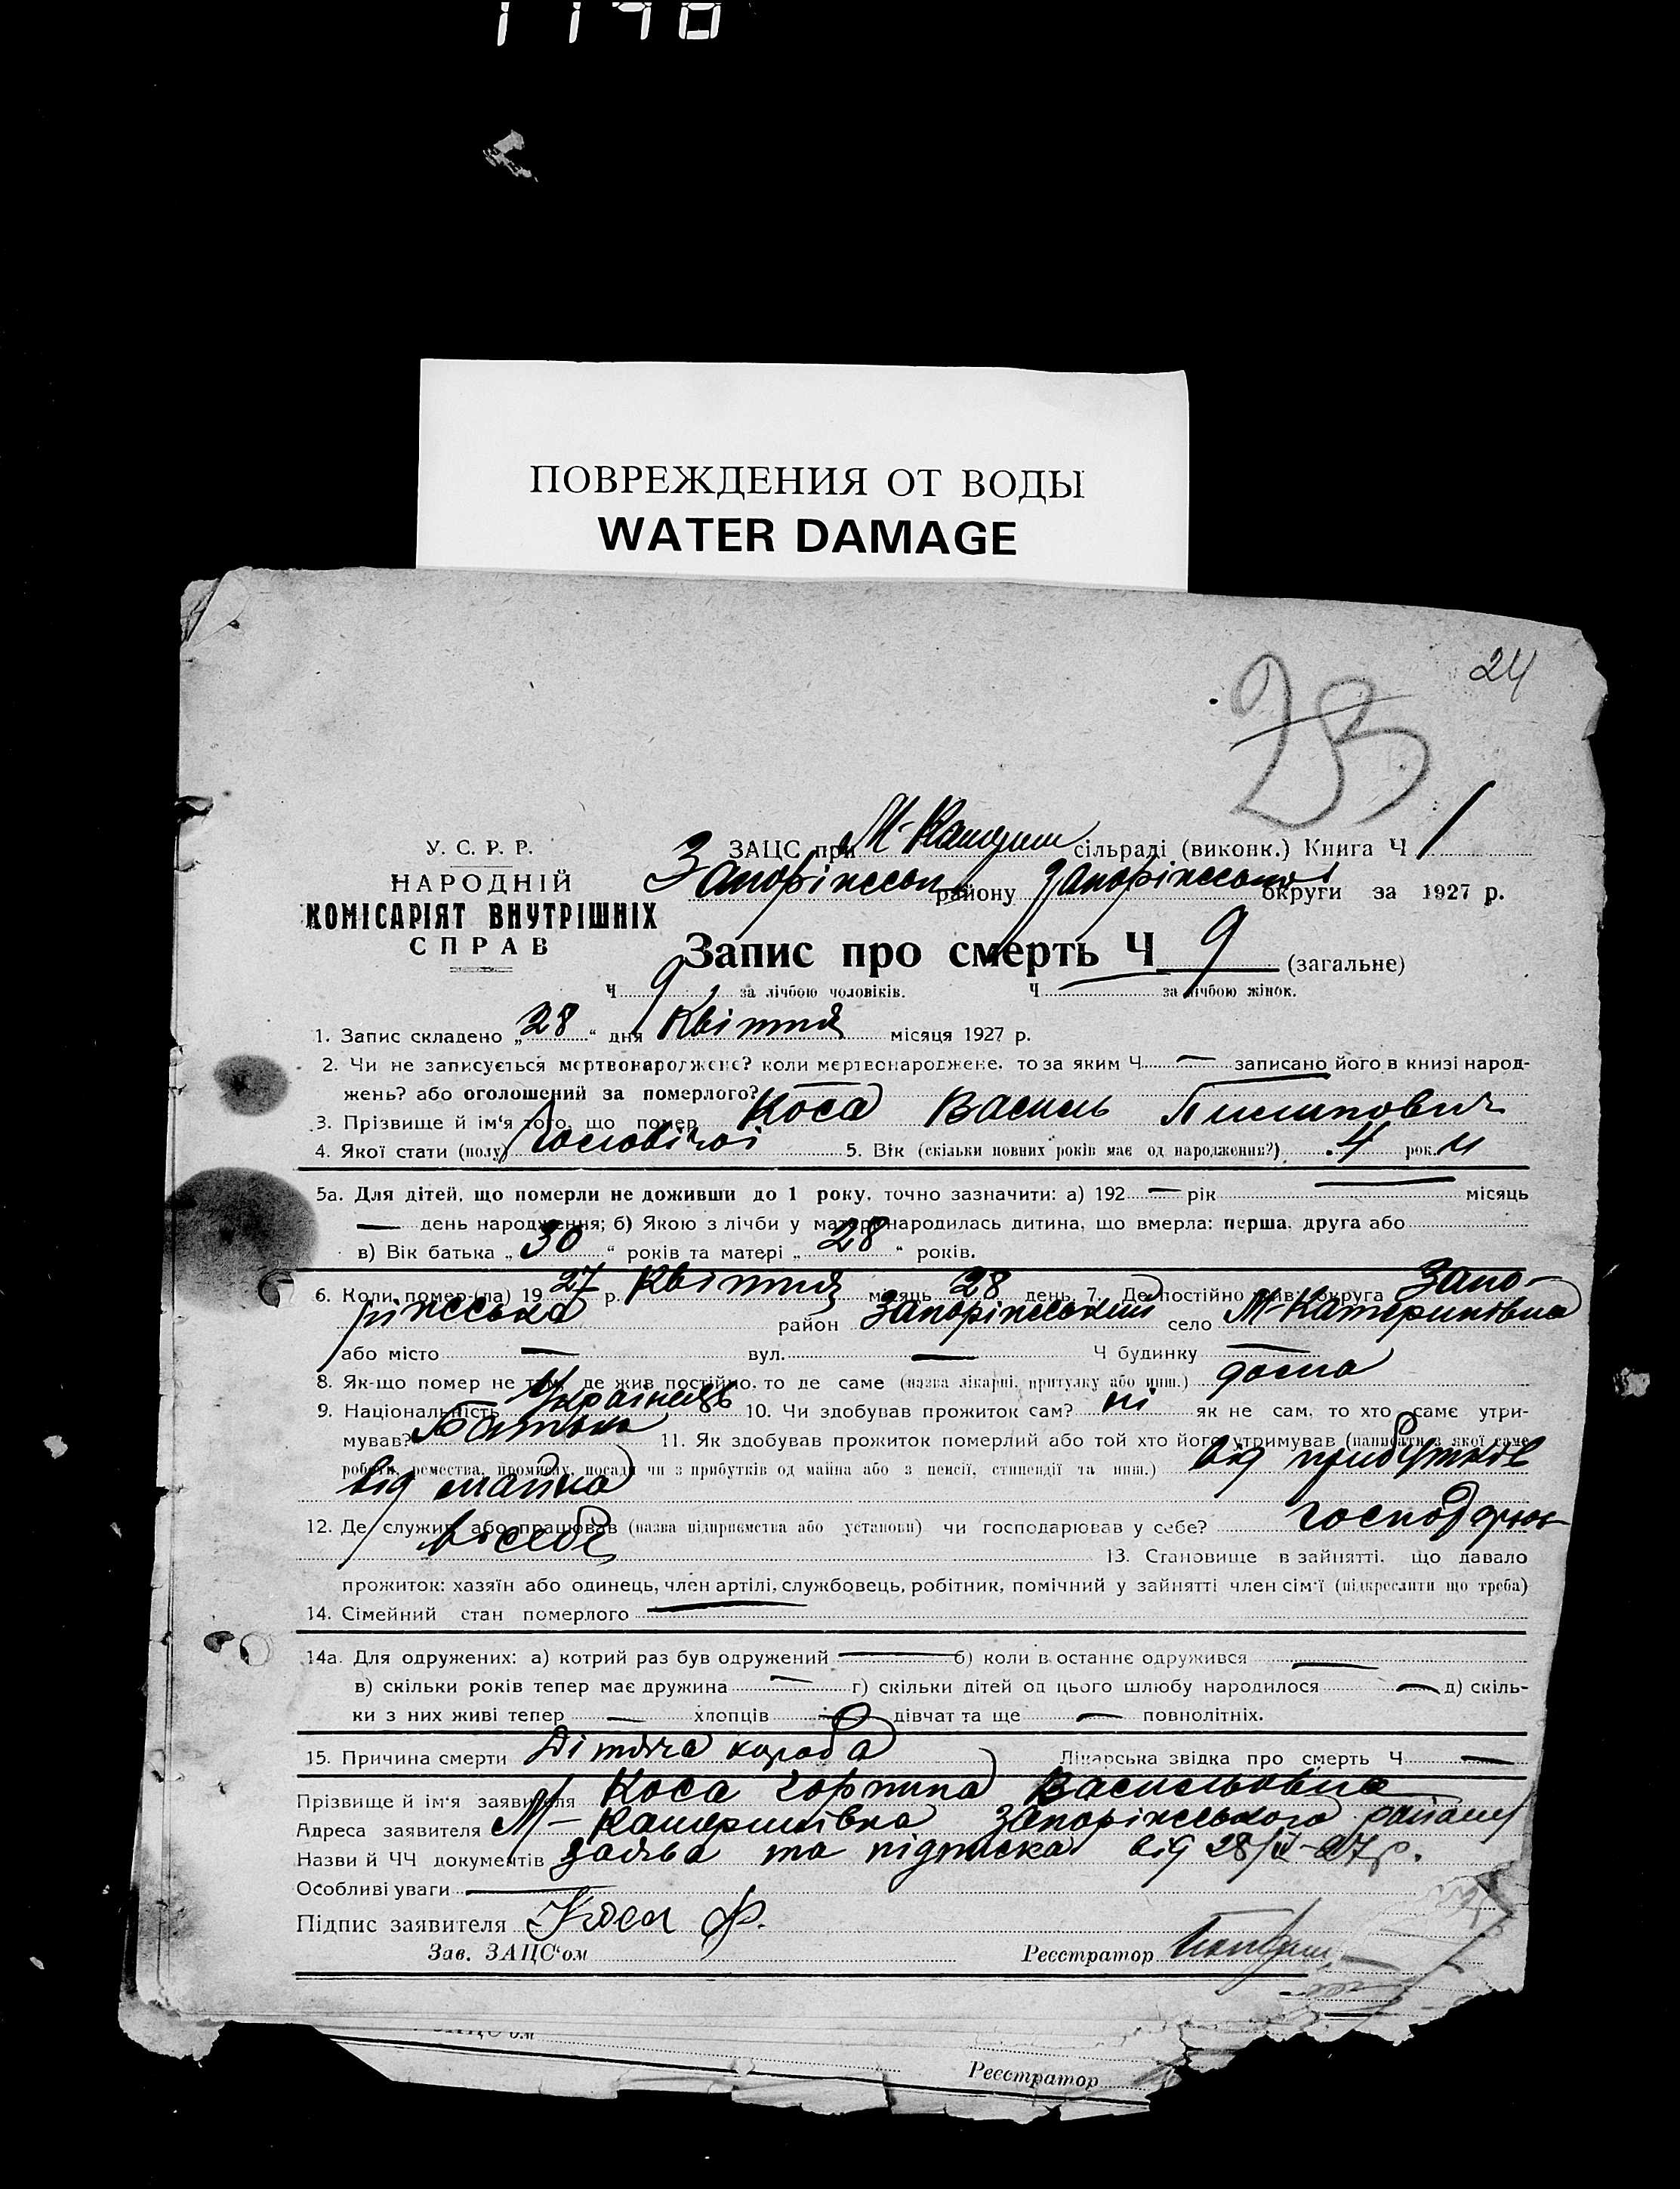 ПОВРЕЖДЕНИЯ ОТ ВОДЫ
WATER DAMAGE
24
23
У. С. Р. Р.
НАРОДНІЙ
КОМІСАРІЯТ ВНУТРІШНІХ
СПРАВ
ЗАЦС при М-Катерин сільраді (виконк.) Книга Ч 1
Запоріжськ району Запоріжської округи за 1927 р.
Запис про смерть Ч 9 (загальне)
Ч 9 за лічбою чоловіків. Ч — за лічбою жінок.
1. Запис складено „28“ дня Квітня місяця 1927 р.
2. Чи не записується мертвонароджене? коли мертвонароджене, то за яким Ч — записано його в книзі народ-
жень? або оголошений за померлого? —
3. Прізвище й ім'я того, що помер Коса Василь Пилипович
4. Якої стати (полу) Чоловічої 5. Вік (скільки повних років має од народження?) 4 рок и
5а. Для дітей, що померли не доживши до 1 року, точно зазначити: а) 192 — рік — місяць
— день народження; б) Якою з лічби у матері народилась дитина, що вмерла: перша, друга або
в) Вік батька „30“ років та матері „28“ років.
6. Коли помер-(ла) 1927 р. Квітня місяць 28 день. 7. Де постійно жив: округа Запо-
ріжська район Запоріжський село М-Катеринівка
або місто — вул. — Ч будинку —
8. Як-що помер не там, де жив постійно, то де саме (назва лікарні, притулку або инш.) дома
9. Національність Українець 10. Чи здобував прожиток сам? ні як не сам, то хто саме утри-
мував? Батько 11. Як здобував прожиток померлий або той хто його утримував (написати з якої саме
роботи, ремества, промислу, посади чи з прибутків од майна або з пенсії, стипендії та инш.) від прибутків
від майна
12. Де служив або працював (назва підприємства або установи) чи господарював у себе? господарює
в себе 13. Становище в зайнятті, що давало
прожиток: хазяїн або одинець, член артілі, службовець, робітник, помічний у зайнятті член сім'ї (підкреслити що треба)
14. Сімейний стан померлого —
14а. Для одружених: а) котрий раз був одружений — б) коли в останнє одружився —
в) скільки років тепер має дружина — г) скільки дітей од цього шлюбу народилося — д) скіль-
ки з них живі тепер — хлопців — дівчат та ще — повнолітніх.
15. Причина смерти Дітяча хороба Лікарська звідка про смерть Ч —
Прізвище й ім'я заявителя Коса Горпина Васильовна
Адреса заявителя М-Катеринівка Запоріжського району
Назви й ЧЧ документів Заява та підписка від 28/IV-27 р.
Особливі уваги —
Підпис заявителя Коса Ф.
Зав. ЗАЦС'ом Реєстратор
Реєстратор